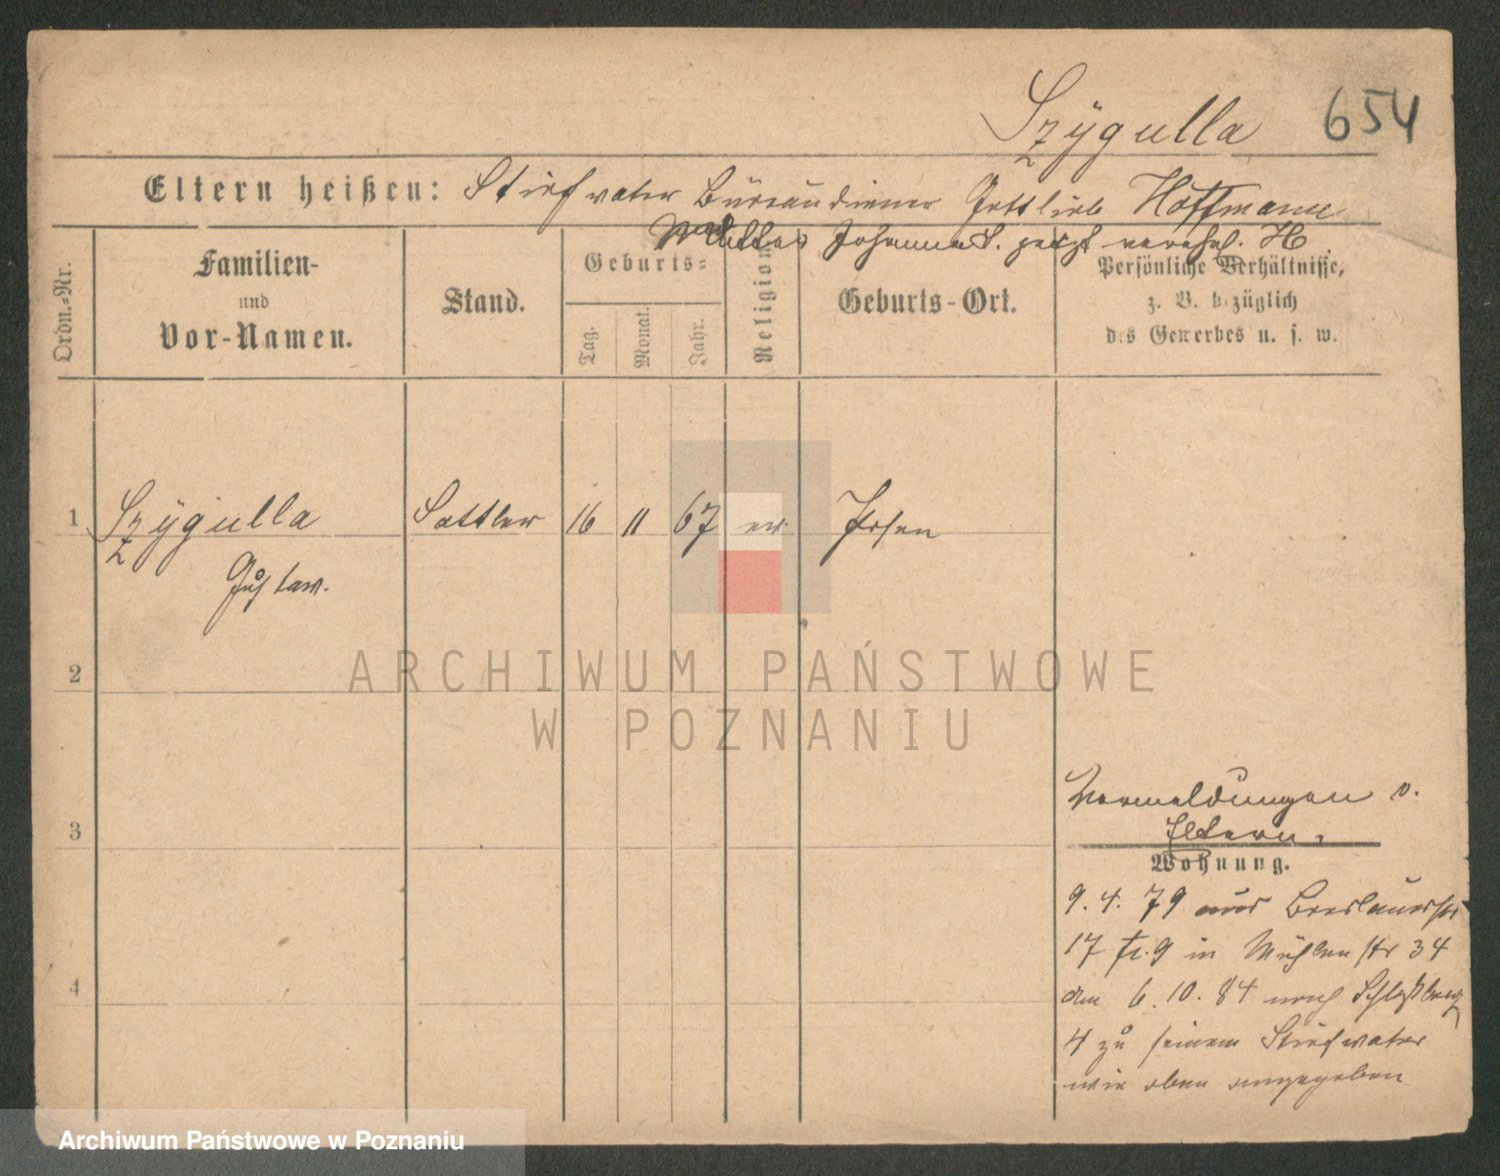 Szÿgulla 654
Eltern heißen: Stiefvater Büreaudiener Gottlieb Hoffmann
Mutter Johanna S. jetzt verehel. H
Ordn.-Nr.
Familien-
und
Vor-Namen.
Stand.
Geburts-
Tag.
Monat.
Jahr.
Religion
Geburts-Ort.
Persönliche Verhältnisse,
z. B. bezüglich
des Gewerbes u. s. w.
1 Szÿgulla Sattler 16 11 67 ev. Posen
Gustav.
2
ARCHIWUM PAŃSTWOWE
W POZNANIU
3
Vermeldungen v.
Eltern.
Wohnung.
9. 4. 79 aus Breslauerstr
17 fr. 9 in Mühlenstr 34
4
am 6. 10. 84 nach Schloßberg
4 zu seinem Stiefvater
wie oben angegeben
Archiwum Państwowe w Poznaniu